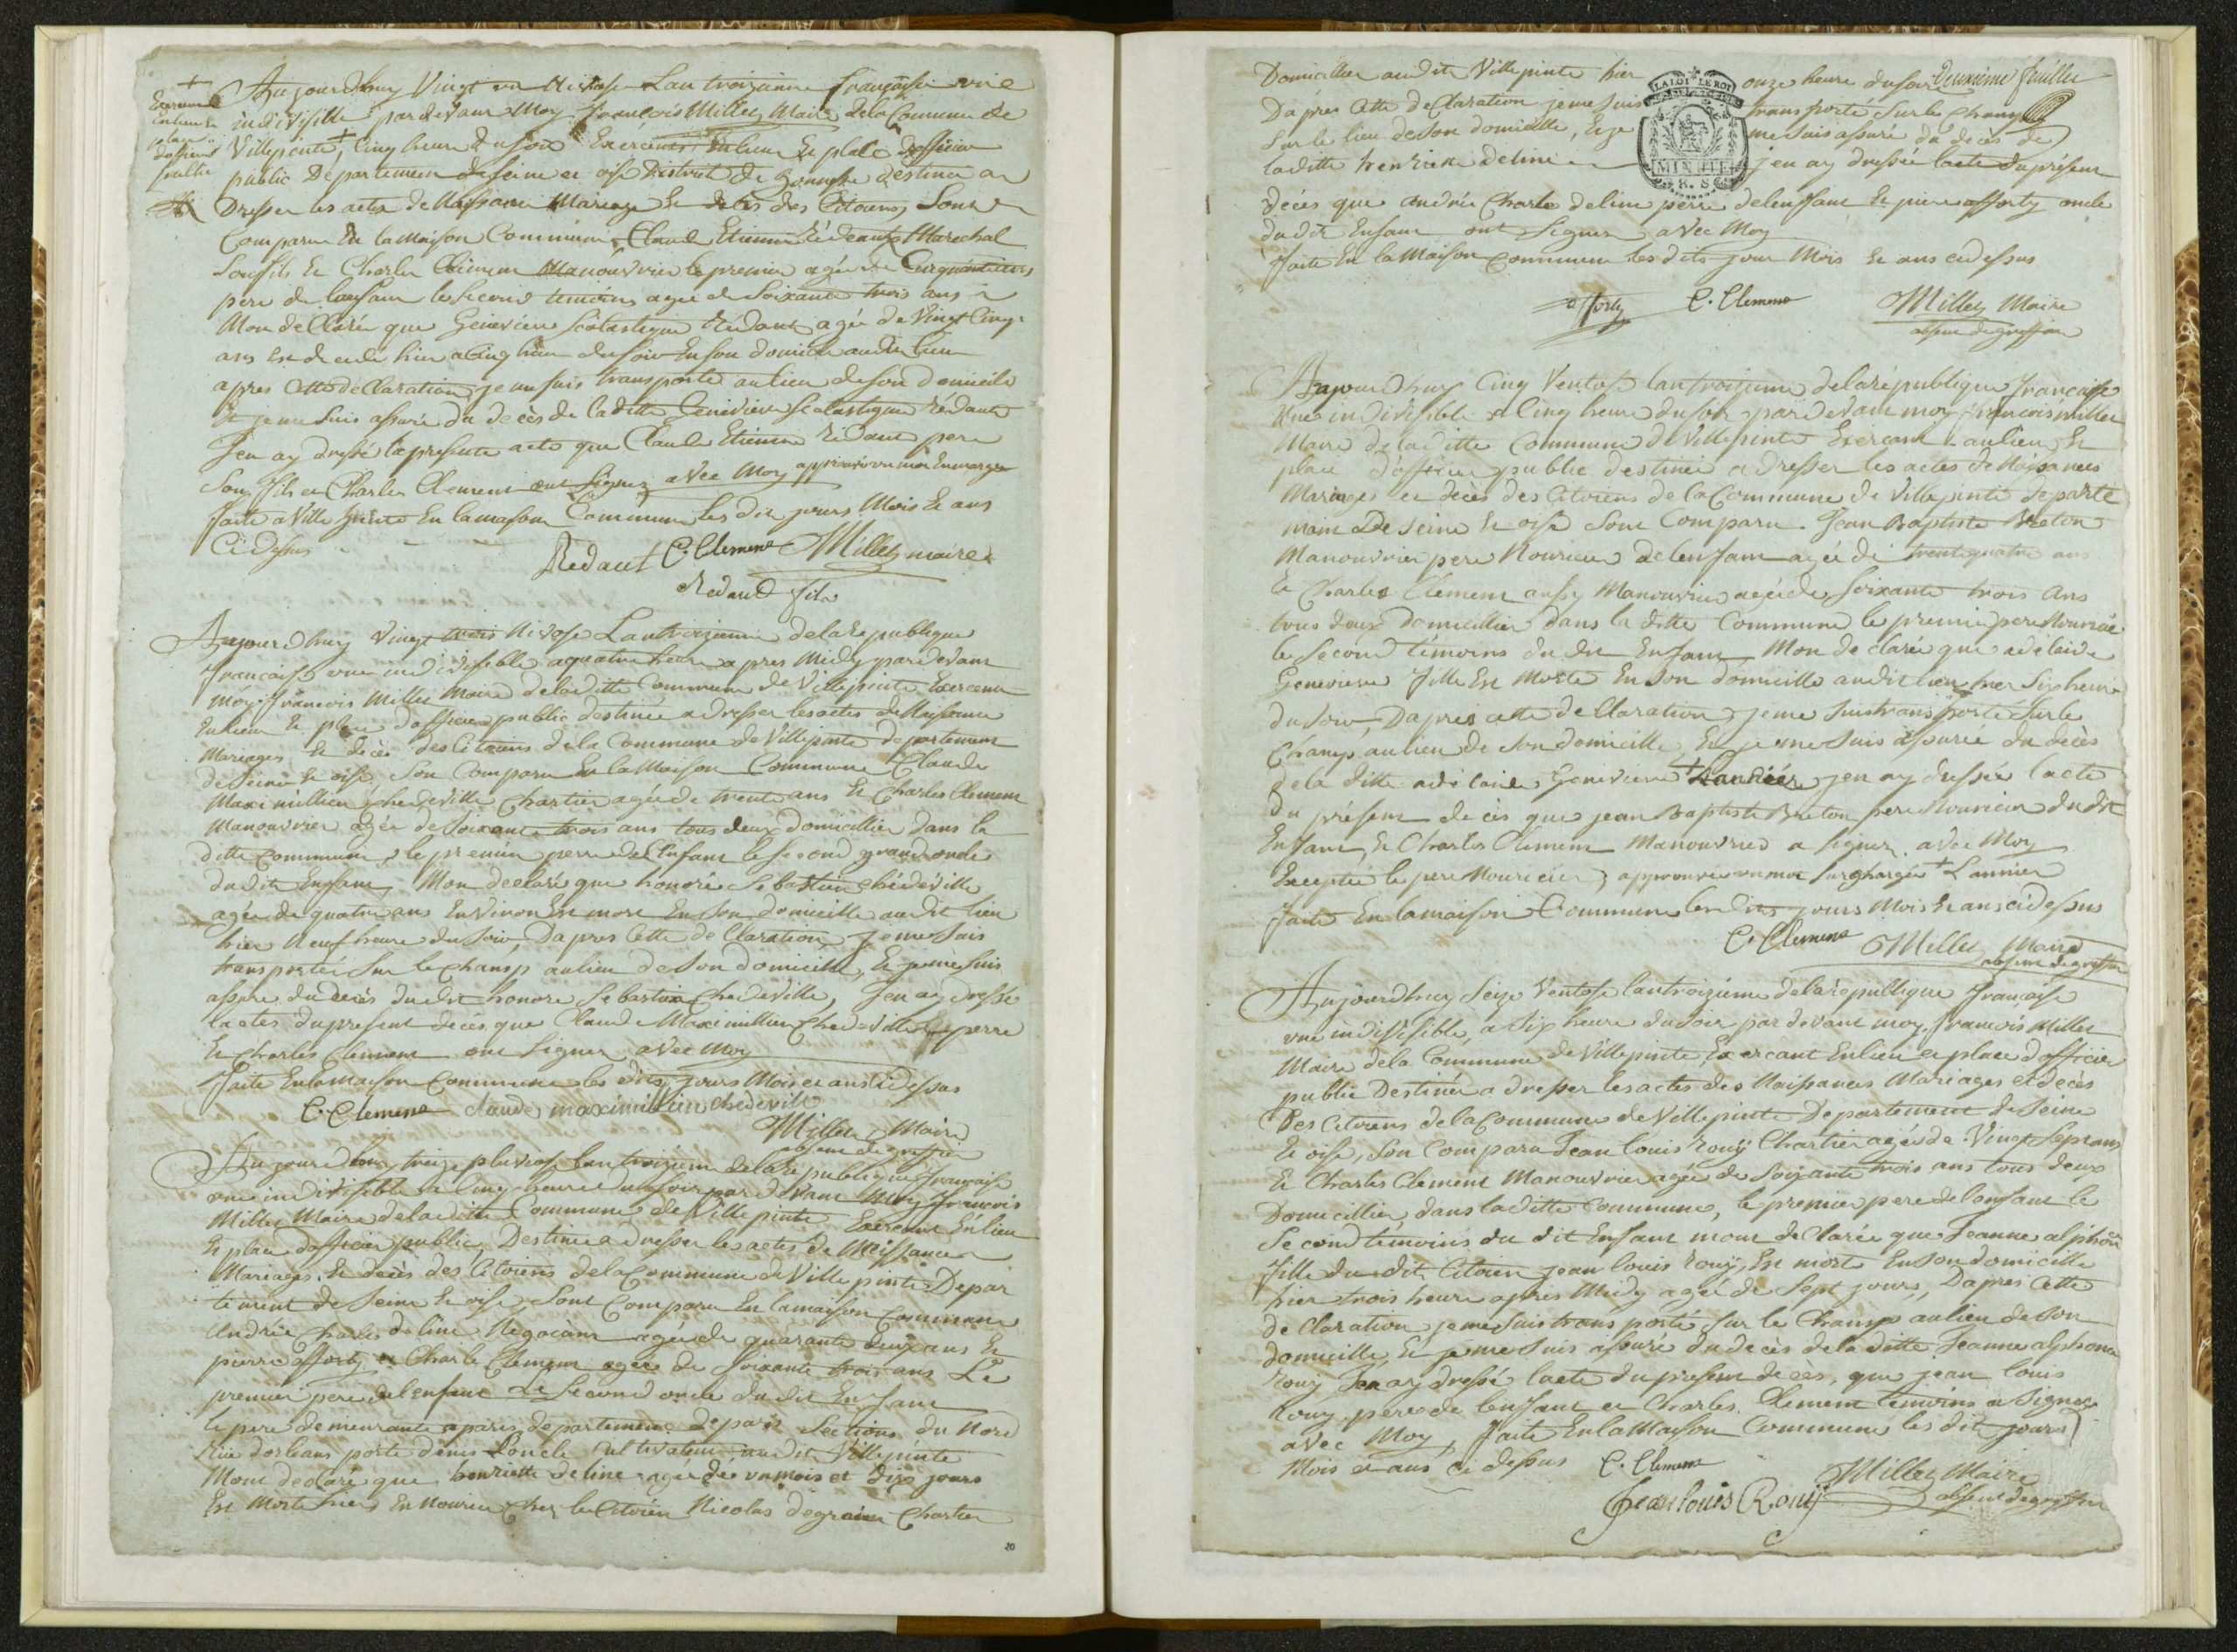 Aujourdhuy Vingt un Nivose Lan troizieme française une
indivisible pardevant Moy François Millet Maire dela Commune de
Villepente + Cinq heure du soir Exercents En lieu Et place dofficier
public Département de seine et oise District de Gonnesse destinée a
Dresser les actes de Naissance Mariage Et décès des Citoiens Sont
Comparu En la Maison Commune Claude Etienne Rédeaut Marechal
Son fils Et Charles Clement Manouvrier le premier agée de Cinquante
pere de lanfant le second temoins agée de Soixante trois ans
Mon declarée que Genevieve Scolastique Rédaut agée de Vingt Cinq
ans Est decedé hier a Cinq heure du soir En son domicile audit lieu
apres Cette declaration je me suis transporté aulieu de son domicile
Et je me suis assuré du decès de laditte Genevieve Scolastique Rédaut
Jen ay dressé la presente acte que Claude Etienne Rédaut pere
Son fils et Charles Clement ont Signez avec Moy approuvé un mot En marge
faite a Ville pinte En la maison Commune Les dit jours Mois Et ans
Ci dessus
Redaut C. Clement Millet maire
Redaud fils
+
Exercent
En lieu Et
place
dofficier
public
Aujourdhuy Vingt trois Nivose Lan troizieme dela Republique
francaise une indivisible aquatre heure apres Midy pardevant
moy François Millet Maire deladitte Commune de Villepinte Exercent
En lieu Et place dofficier public destinée adresser les actes de Naissance
Mariages Et décès des Citoiens dela Commune de Villepinte departement
de Seine Et oise Son Comparu En la Maison Commune Claude
Maximillien Chedeville Chartier agée de trente ans Et Charles Clement
Manouvrier agée de Soixante trois ans tous deux domicillier dans la
ditte Commune, le premier perre de lenfant le second grand oncle
du dit Enfant Mon declaré que honoré Sebastien chédéville
agée de quatre ans Environ Est mort En son domicille audit lieu
hier Neuf heure du Soir, Dapres Cette declaration, je me suis
transportée Sur le Champ aulieu de Son domicille, Et je me suis
assuré du decès dudit honoré Sebastien Chedeville, Jen ay dressé
lactes du present decès que Claude Maximillien Chedeville perre
Et Charles Clement ont Signer avec Moy
Faite En la Maison Commune les dits jours Mois et ans Ci dessus
C. Clement claude maximillien chedeville
Millet Maire
absent de greffier
Aujourdhuy treize pluviose lan troizieme dela republique française
une indivisible a Cinq heure du soir par devant moy François
Millet Maire deladitte Commune de Villepinte Exercent En lieu
Et place dofficier public, Destinée a dresser les actes de Naissance
Mariages Et decès des Citoiens dela Commune de Villepinte Depar
tement de Seine Et oise, Sont Comparu En la maison Commune
André Charles deline Negociant agée de quarante deux ans Et
pierre afforty et Charle Clement agée de Soixante trois ans Le
premier pere delenfant Le Second oncle du dit Enfant
le pere demeurante aparis departement de paris Sections du Nord
Rue dorleans porte denis Loncle Cultivateur audit Villepinte
Mont declaré que henriette deline agée de un mois et dix jours
Est Morte hier En Nourice Chez le Citoien Nicolas degraine Chartier
20
Domicillier audit Villepinte hier onze heure du soir Deuxieme feuillet
Dapres Cette declaration je me suis transporté Sur le Champ
Sur le lieu de Son domicille, Et je me suis assuré du decès de
laditte henriete deline jen ay dressée lacte du présent
LA LOI LE ROI
MINUTE
décès que andrée Charle deline perre de lenfant Et piere afforty oncle
dudit Enfant ont Signer avec Moy
Faite En la Maison Commune les dits jour Mois Et ans cidessus
afforty C. Clement Millet Maire
absent de greffier
Aujourdhuy Cinq Ventose lan troizieme dela république francaise
Une indivisible a Cinq heure du soir pardevant moy francois millet
Maire deladitte Commune de Villepinte Exercant aulieu Et
place dofficier public destinée a dresser les actes de Naissances
Mariages et décès des Citoiens de la Commune de Villepinte departe
ment de Seine Et oise Sont Comparu Jean Baptiste Breton
Manouvrier pere Nouricier de lenfant agée de trentequatre ans
Et Charles Clement aussy Manouvrier agée de Soixante trois Ans
tous deux domicillier dans la ditte Commune le premier pere Nourricié
le Second témoins du dit Enfant, Mon declarée que adelaide
Genevieve fille Est Morte En Son domicille audit lieu hier Six heure
du Soir, Dapres cette declaration je me suis transporté Sur le
Champ au lieu de Son domicille, Et je me suis assurée du decès
de la ditte adélaide Genevieve + Lanniér jen ay dressée lacte
du présent decès que jean Baptiste Breton pere Nouricier du dit
Enfant, Et Charles Clement Manouvrier a Signer avec Moy
Exceptée le pere Nouricier, approuvée un mot Surchargée + Lannier
Faite En la maison Commune les dits jours Mois Et ans cidessus
C. Clement Millet Maire
absent de greffier
Aujourdhuy Seize Ventose lan troizieme dela république française
une indivisible, a Six heure du Soir par devant moy francois Millet
Maire dela Commune de Villepinte, Exercant En lieu et place dofficier
public Destinée a dresser les actes des Naissances Mariages et decès
des Citoiens dela Commune de Villepinte Departement de Seine
Et oise, Son Comparu Jean louis Rouÿ Chartier agée de Vingt Sept ans
Et Charles Clement Manouvrier agée de Soixante trois ans tous deux
Domicillier dans laditte Commune, le premier pere de lenfant le
Second témoins du dit Enfant mont declarée que Jeanne alphon
fille du dit Citoien jean louis Rouÿ, Est morte En Son domicille
hier trois heure apres Midy agée de Sept jours, Dapres Cette
declaration je me suis transporté, Sur le Champ au lieu de Son
domicille, Et je me suis assuré du decès de laditte Jeanne alphonse
Rouÿ Jen ay dressé lacte du present decès, que jean louis
Rouÿ pere de lenfant et Charles Clement temoins a Signez
avec Moy, Faite En la Maison Commune les dit jours
Mois et ans ci dessus C. Clement Millet Maire
Jean louis Rouÿ absent de greffier